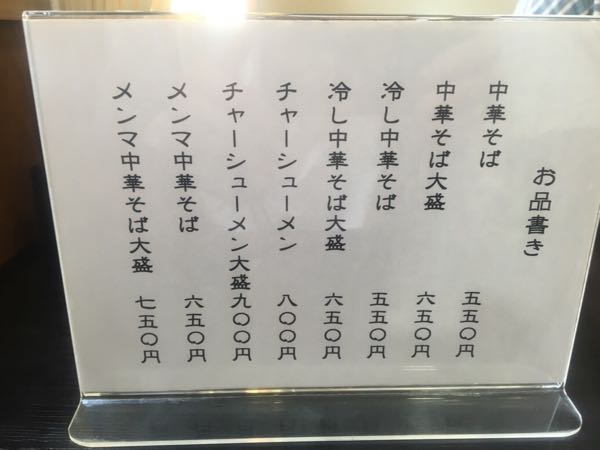 お品書き
中華そば 五五〇円
中華そば大盛 六五〇円
冷し中華そば 五五〇円
冷し中華そば大盛 六五〇円
チャーシューメン 八〇〇円
チャーシューメン大盛 九〇〇円
メンマ中華そば 六五〇円
メンマ中華そば大盛 七五〇円